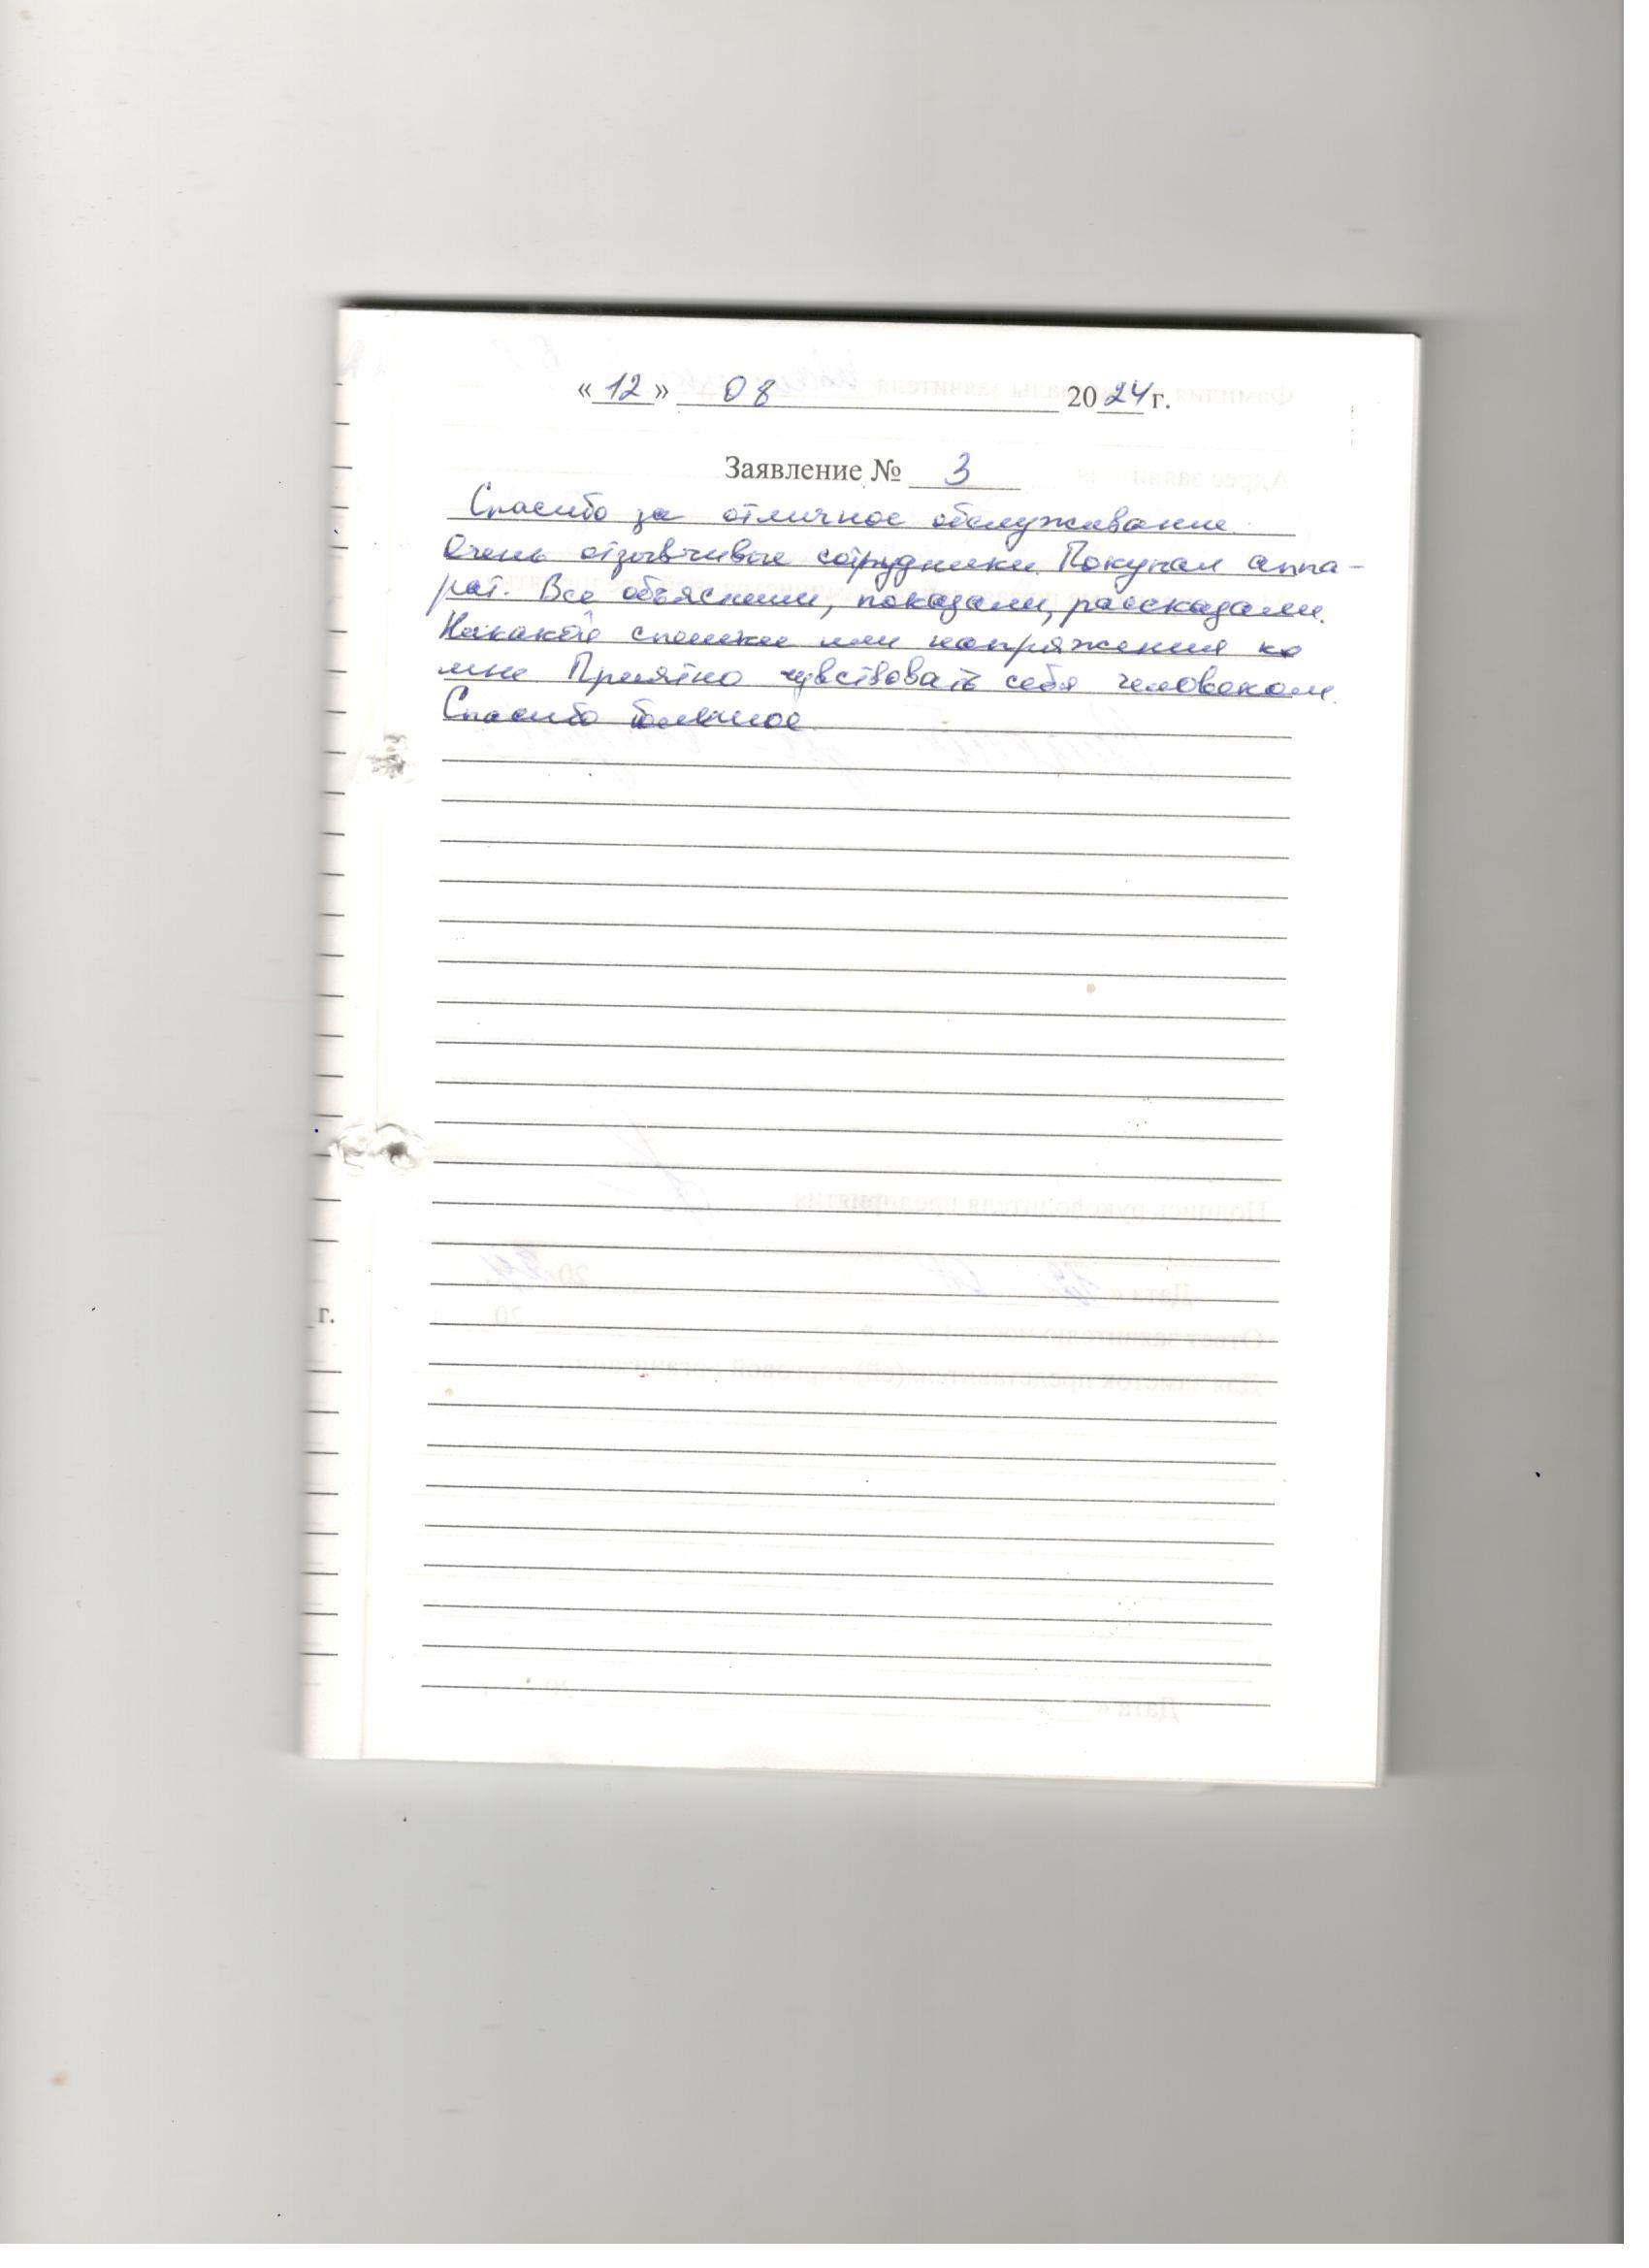 «12» 08 2024 г.
Заявление № 3
Спасибо за отличное обслуживание.
Очень отзывчивые сотрудники. Покупал аппа-
рат. Все объяснили, показали, рассказали.
Никакой спешки или напряжения ко
мне Приятно чувствовать себя человеком.
Спасибо большое
г.